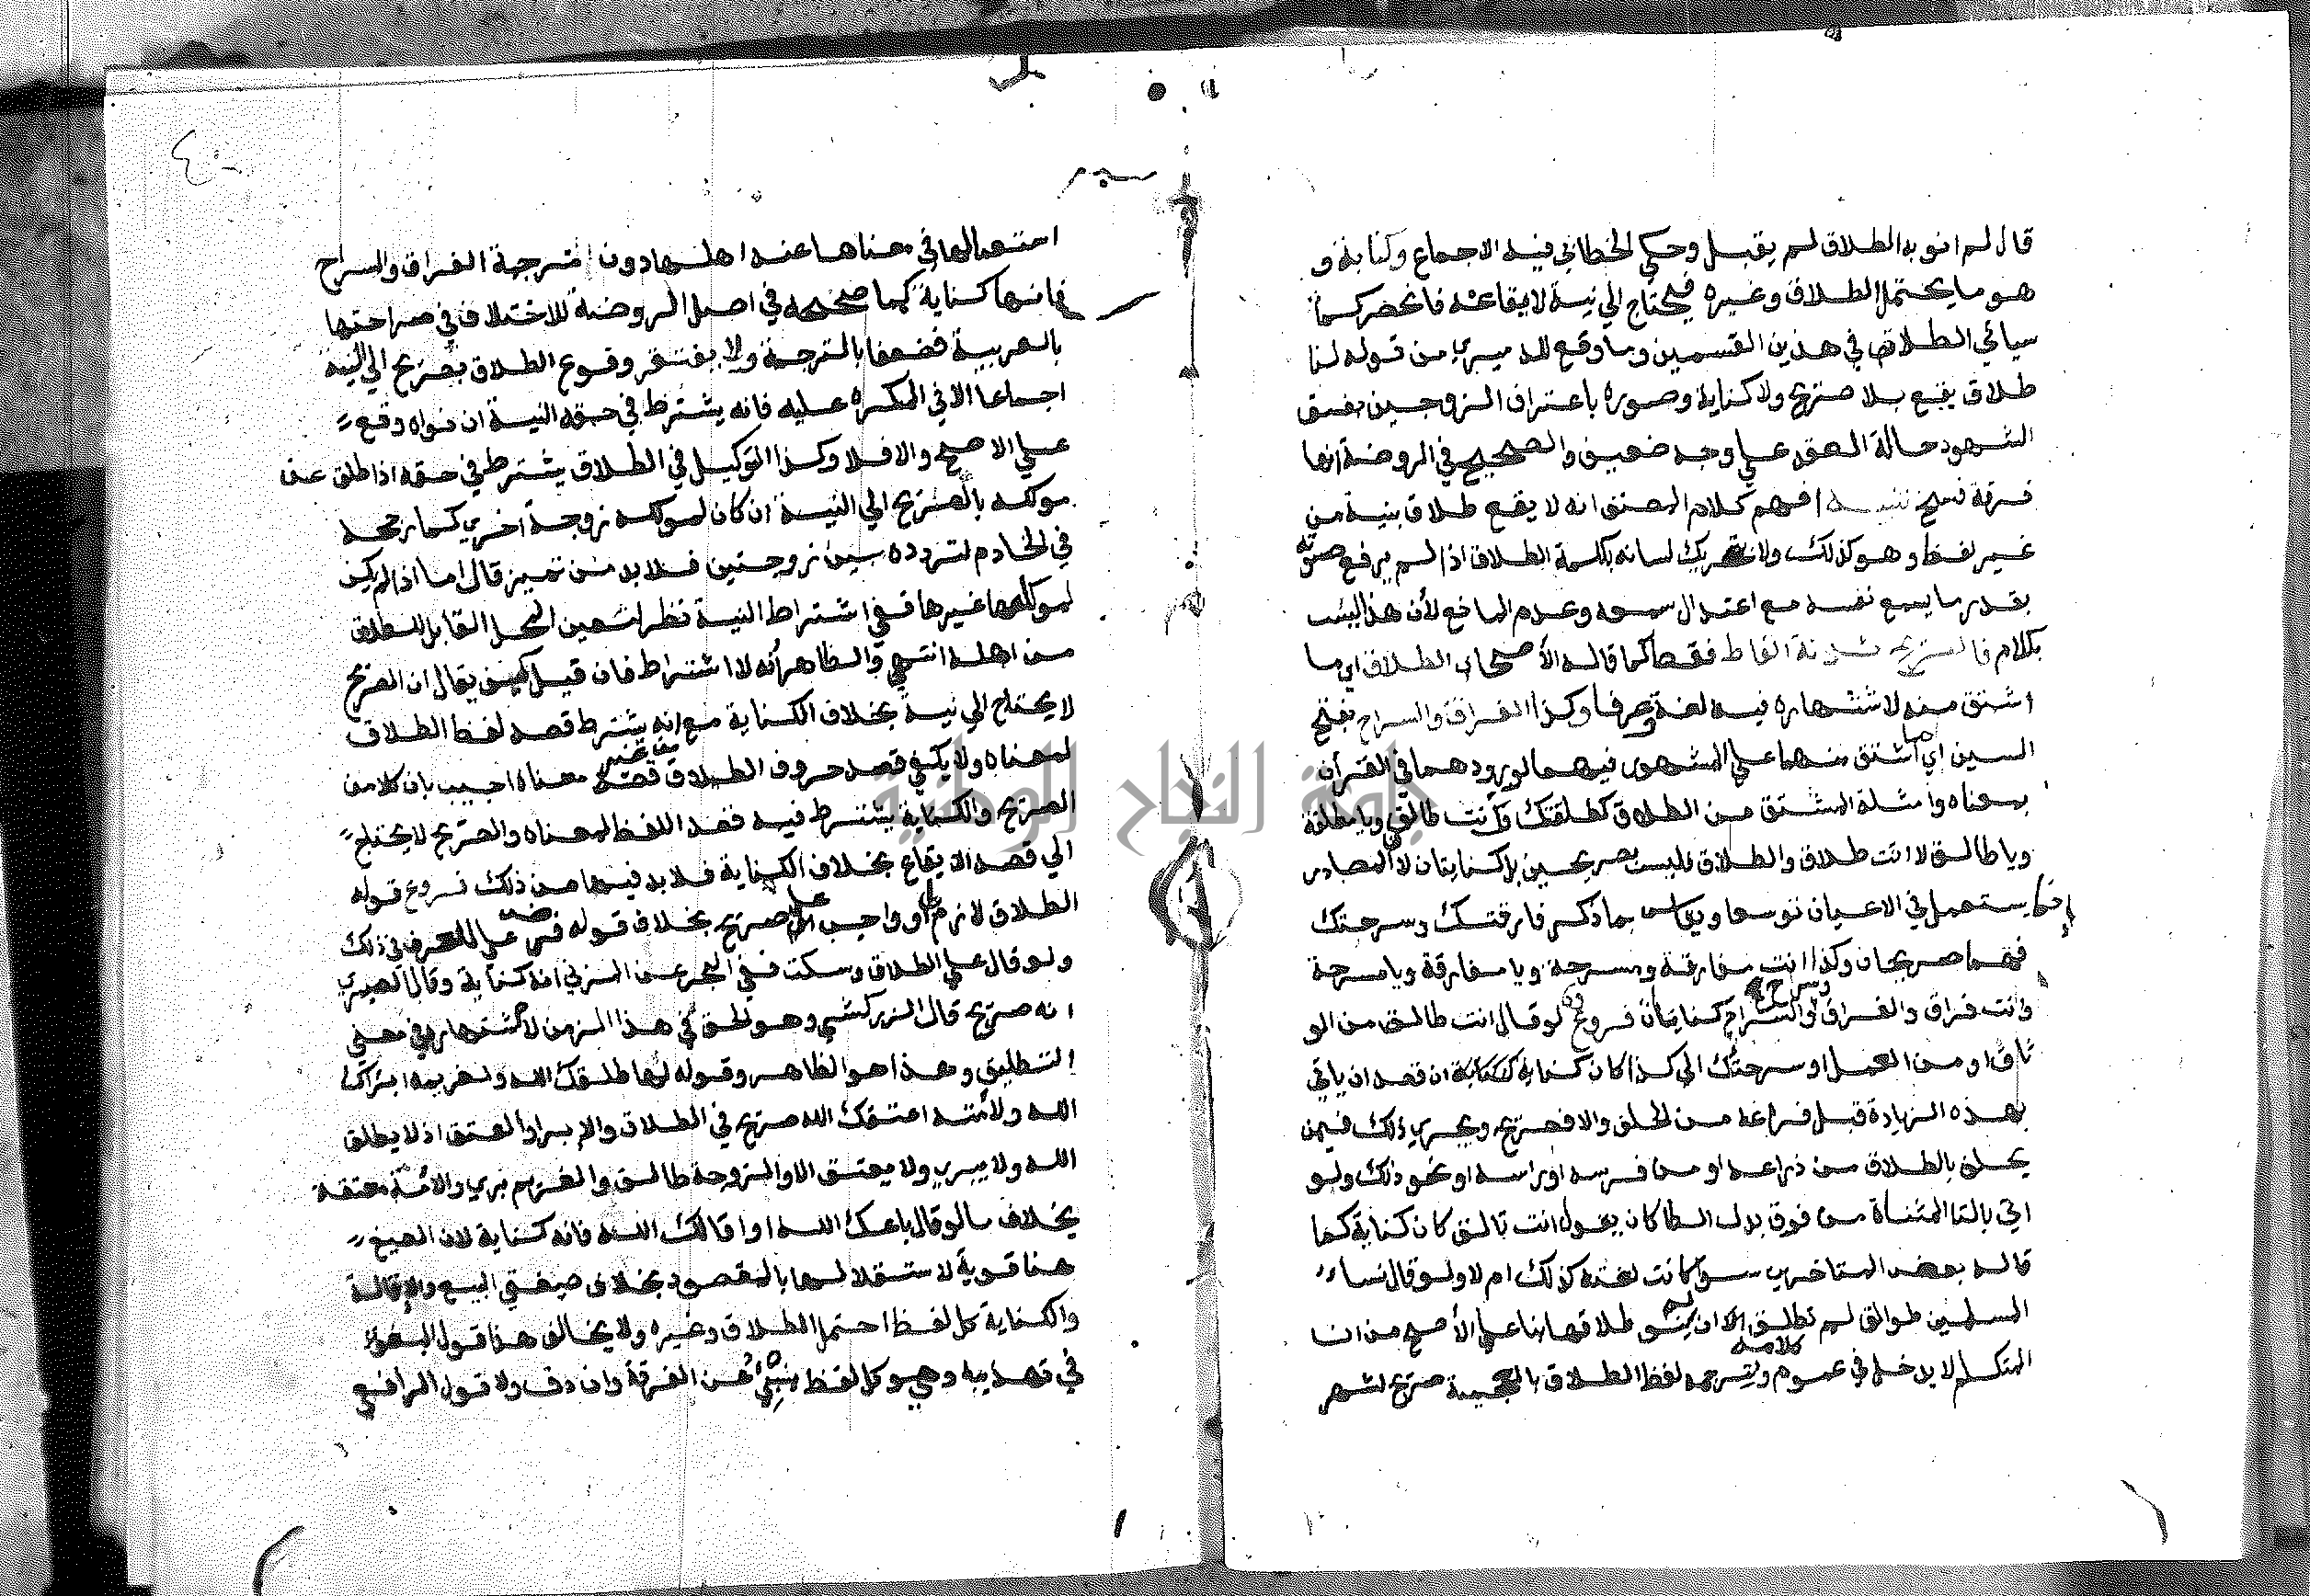 قال لم انو به الطلاق لم يقبل وحكي الخطابي فيه الاجماع وكناية و
هو ما يحتمل الطلاق وغيره فيحتاج الي نية لايقاعه فانحصر كما
سيأتي الطلاق في هذين القسمين وما وقع للدميري من قوله لنا
طلاق يقع بلا صريح ولا كناية وصوره باعتراف الزوجين بفسق
الشهود حالة العقد علي وجه ضعيف والصحيح في الروضة انها
فرقة فسخ تنبيه افهم كلام المصنف انه لا يقع طلاق بنية من
غير لفظ وهو كذلك ولا بتحريك لسانه بكلمة الطلاق اذا لم يرفع صوته
بقدر ما يسمع نفسه مع اعتدال سمعه وعدم المانع لأن هذا ليس
بكلام فالصريح ثلاثة الفاظ فقط كما قاله الأصحاب الطلاق اي ما
اشتق منه لاشتهاره فيه لغة وعرفا وكذا الفراق والسراح بفتح
السين اي ما اشتق منهما علي المشهور فيهما لورودهما في القرآن
بمعناه وامثلة المشتق من الطلاق كطلقتك وانت طالق ويا مطلقة
ويا طالق لا انت طلاق والطلاق فليست بصريحين بل كنايتان لان المصادر
انما يستعمل في الاعيان توسعا ويقاس بما ذكر فارقتك وسرحتك
فهما صريحان وكذا انت مفارقة ومسرحة ويا مفارقة ويا مسرحة
وانت فراق والفراق وسراح والسراح كنايتان فروع لو قال انت طالق من الو
ثاق او من العمل او سرحتك الي كذا كان كناية ان قصد ان ياتي
بهذه الزيادة قبل فراغه من الحلف والا فصريح ويجري ذلك فيمن
يحلف بالطلاق من ذراعه او من فرسه او راسه او نحو ذلك ولو
اتي بالتا المثناة من فوق بدل الطا كان يقول انت تالق كان كناية كما
قاله بعض المتاخرين سوا كانت لغته كذلك ام لا ولو قال نساء
المسلمين طوالق لم تطلق الا ان لم ينو طلاقها بنا علي الأصح من ان
المتكلم لا يدخل في عموم كلامه وترجمه لفظ الطلاق بالعجمية صريح لشهر
استعمالها في معناها عند اهلها دون ترجمة الفراق والسراح
فانها كناية كما صححه في اصل الروضة للاختلاف في صراحتها
بالعربية فضعفا بالترجمة ولا يفتقر وقوع الطلاق بصريح الي النية
اجماعا الا في المكره عليه فانه يشترط في حقه النية ان نواه وقع
علي الاصح والا فلا وكذا التوكيل في الطلاق يشترط في حقه اذا طلق عن
موكله بالصريح الي النية ان كان لموكله زوجة اخري كما رجحه
في الخادم لتردده بين زوجتين فلا بد من تمييز قال اما اذا لم يكن
لموكله غيرها ففي اشتراط النية نظر لتعين المحل القابل للطلاق
من اهله انتهي والظاهر أنه لا اشتراط فان قيل كيف يقال ان الصريح
لا يحتاج الي نية بخلاف الكناية مع انه يشترط قصد لفظ الطلاق
لمعناه ولا يكفي قصد حروف الطلاق من غير قصد معناه اجيب بان كلا من
الصريح والكناية يشترط فيه قصد اللفظ لمعناه والصريح لا يحتاج
الي قصد الايقاع بخلاف الكناية فلا بد فيها من ذلك فروع قوله
الطلاق لازم لي او واجب علي صريح بخلاف قوله فرض علي للعرف في ذلك
ولو قال علي الطلاق وسكت ففي البحر عن المزني انه كناية وقال الصيمري
انه صريح قال الزركشي وهو الحق في هذا الزمن لاشتهاره في معني
التطليق وهذا هو الظاهر وقوله لها طلقك الله ولغريمه ابراك
الله ولأمته اعتقك الله صريح في الطلاق والإبرا والعتق اذ لا يطلق
الله ولا يبري ولا يعتق الا والزوجة طالق والغريم بري والامة معتقة
بخلاف ما لو قال باعك الله او اقالك الله فانه كناية لان الصيغ
هنا قوية لاستقلالها بالمقصود بخلاف صيغتي البيع والإقالة
والكناية كل لفظ احتمل الطلاق وغيره ولا يخالف هذا قول البغوي
في تهذيبه وهي كل لفظ ينبئ عن الفرقة وان دق ولا قول الرافعي
جامعة النجاح الوطنية